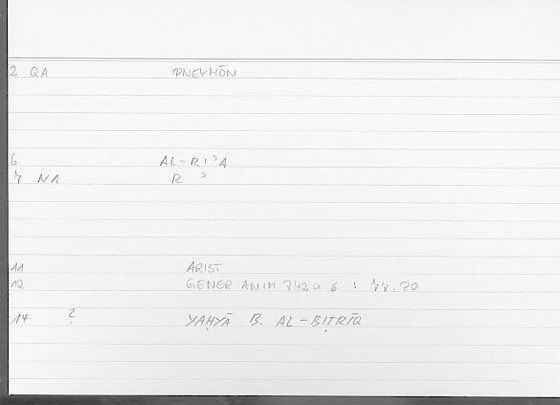 2 QA PNEYMŌN
6 AL-RIʾA
7 NA R ʾ
11 ARIST
12 GENER ANIM 742a 6 : 77.20
14 ? YAḤYĀ B. AL-BIṬRĪQ